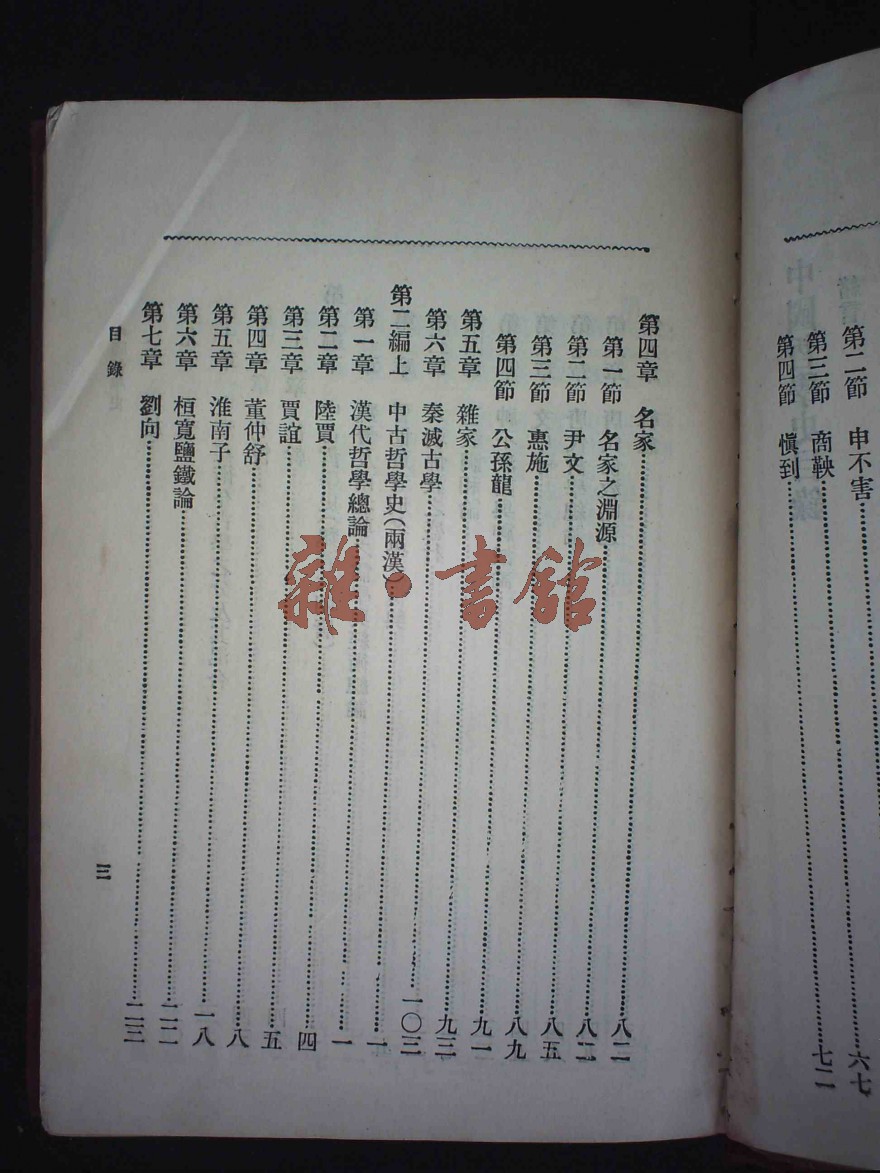 第二節 申不害
第三節 商鞅……六七
第四節 慎到……七二
第四章 名家……八二
第一節 名家之淵源……八二
第二節 尹文……八五
第三節 惠施……八九
第四節 公孫龍……九一
第五章 雜家……九三
第六章 秦滅古學……一〇三
第二編上 中古哲學史(兩漢)……一
第一章 漢代哲學總論……一
第二章 陸賈……四
第三章 賈誼……五
第四章 董仲舒……八
第五章 淮南子……一八
第六章 桓寬鹽鐵論……二二
第七章 劉向……二三
目錄
三
雜·書館